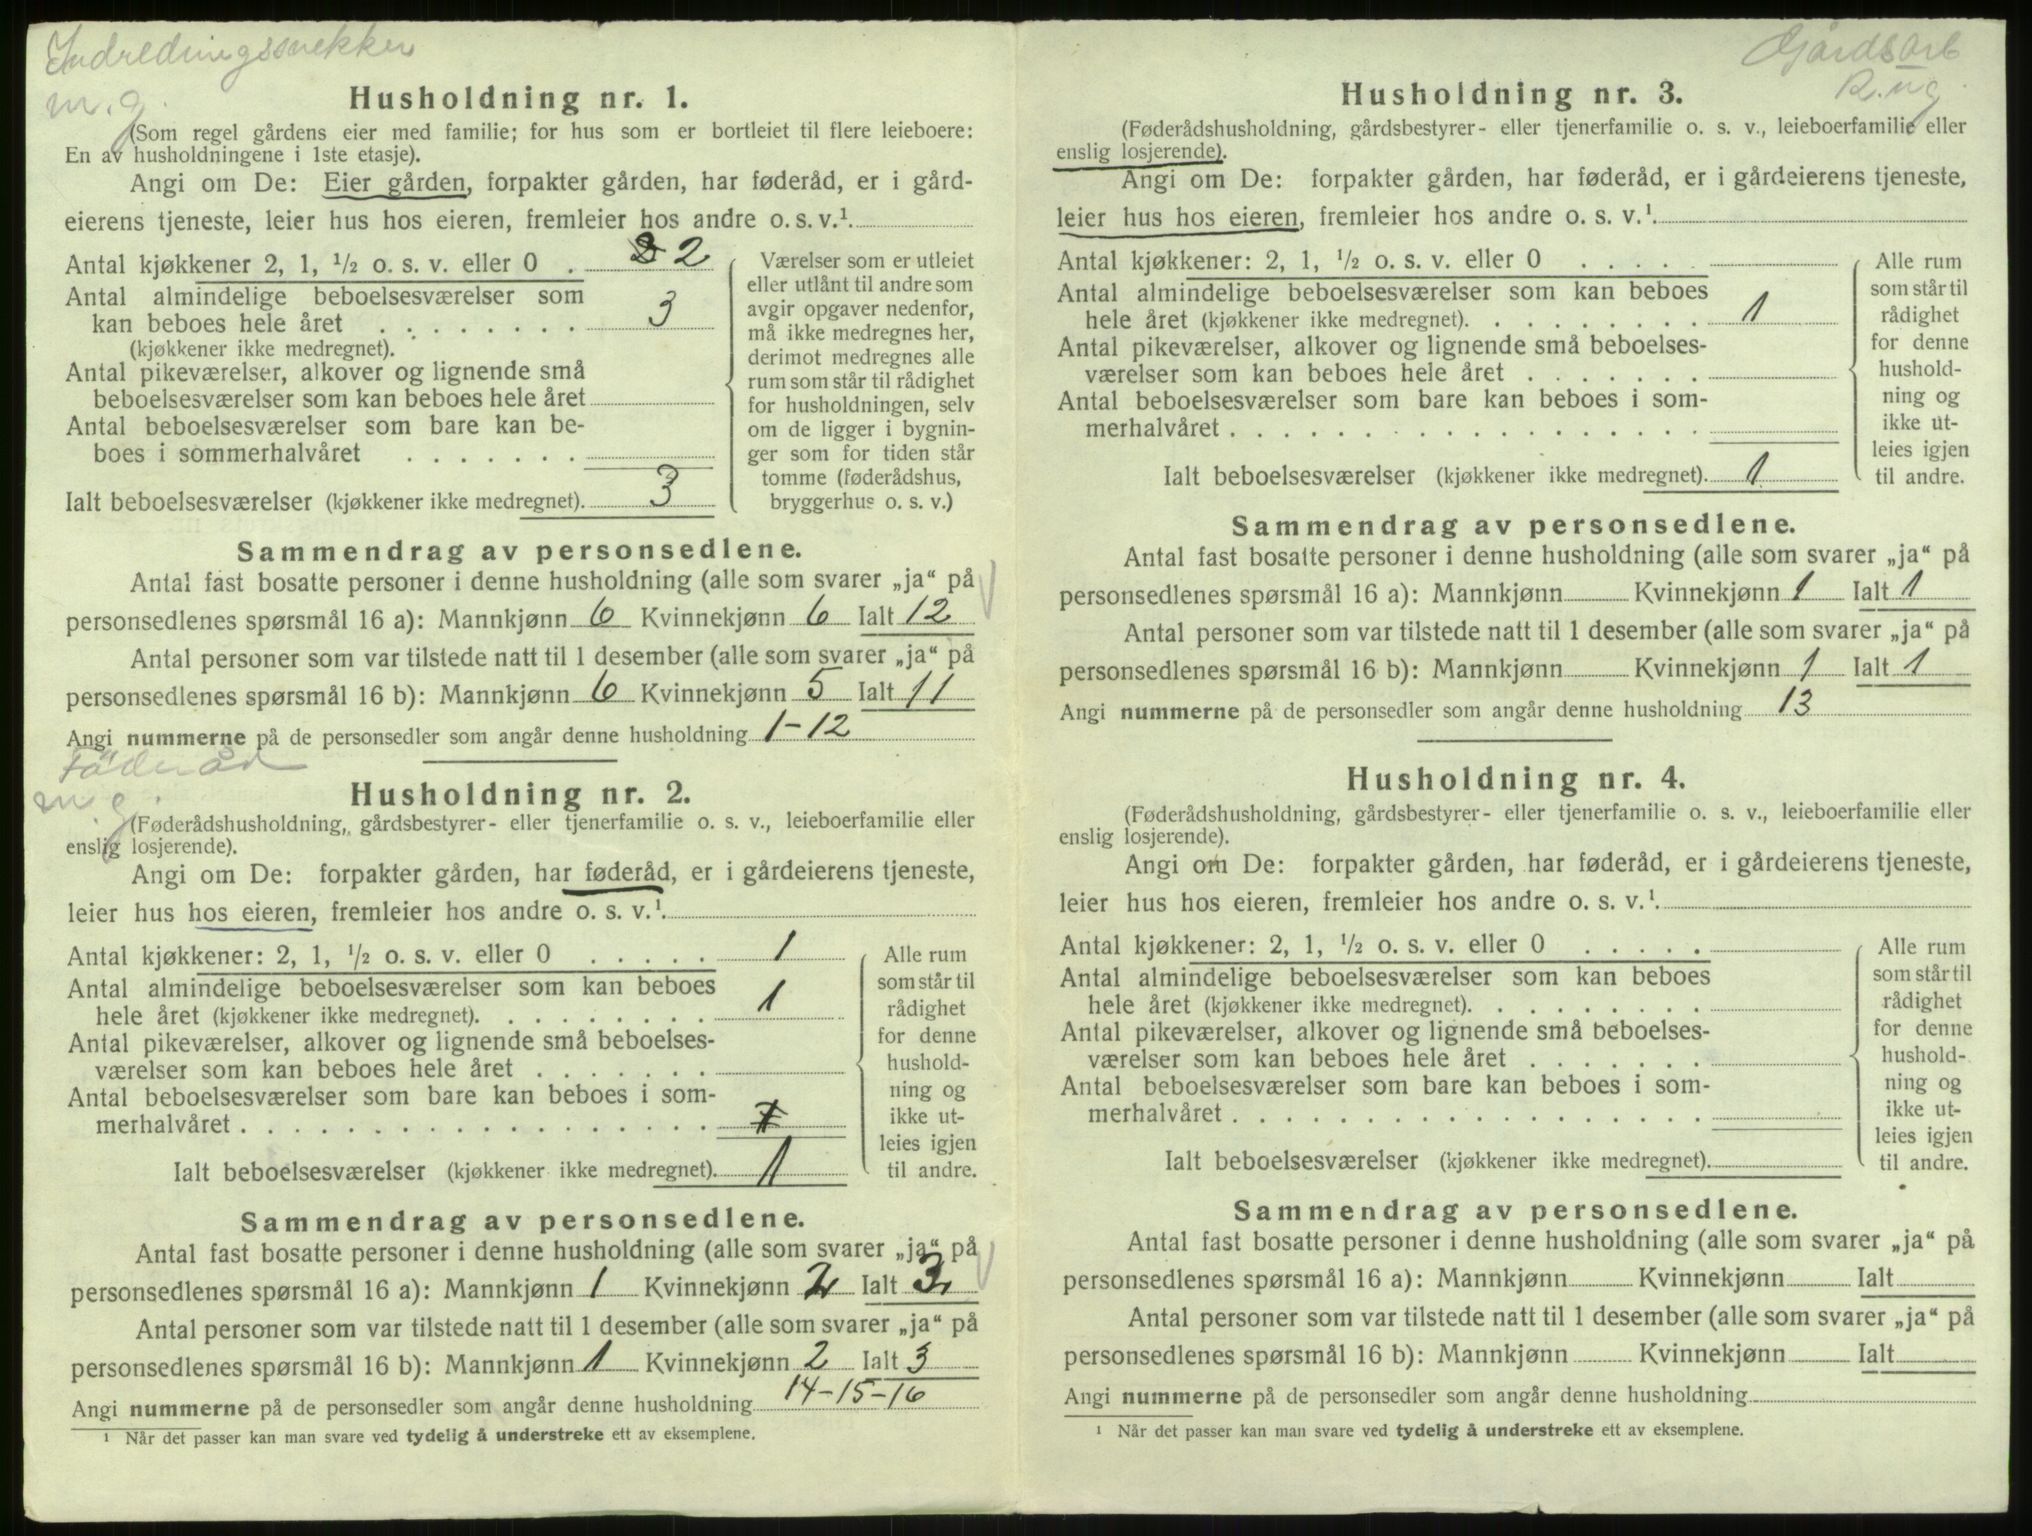 Indredningssnekker
m.g.
Husholdning nr. 1.
(Som regel gårdens eier med familie; for hus som er bortleiet til flere leieboere:
En av husholdningene i 1ste etasje).
Angi om De: Eier gården, forpakter gården, har føderåd, er i gård-
eierens tjeneste, leier hus hos eieren, fremleier hos andre o. s. v.¹
Antal kjøkkener 2, 1, ½ o. s. v. eller 0 . 2 2
Antal almindelige beboelsesværelser som
kan beboes hele året . . . . . . . . 3
(kjøkkener ikke medregnet).
Antal pikeværelser, alkover og lignende små
beboelsesværelser som kan beboes hele året
Antal beboelsesværelser som bare kan be-
boes i sommerhalvåret . . . . . . .
Ialt beboelsesværelser (kjøkkener ikke medregnet). 3
Værelser som er utleiet
eller utlånt til andre som
avgir opgaver nedenfor,
må ikke medregnes her,
derimot medregnes alle
rum som står til rådighet
for husholdningen, selv
om de ligger i bygnin-
ger som for tiden står
tomme (føderådshus,
bryggerhus o. s. v.)
Sammendrag av personsedlene.
Antal fast bosatte personer i denne husholdning (alle som svarer „ja“ på
personsedlenes spørsmål 16 a): Mannkjønn 6 Kvinnekjønn 6 Ialt 12
Antal personer som var tilstede natt til 1 desember (alle som svarer „ja“ på
personsedlenes spørsmål 16 b): Mannkjønn 6 Kvinnekjønn 5 Ialt 11
Angi nummerne på de personsedler som angår denne husholdning 1-12
Føderåd
m.g.
Husholdning nr. 2.
(Føderådshusholdning, gårdsbestyrer- eller tjenerfamilie o. s. v., leieboerfamilie eller
enslig losjerende).
Angi om De: forpakter gården, har føderåd, er i gårdeierens tjeneste,
leier hus hos eieren, fremleier hos andre o. s. v.¹
Antal kjøkkener: 2, 1, ½ o. s. v. eller 0 . . . . . 1
Antal almindelige beboelsesværelser som kan beboes
hele året (kjøkkener ikke medregnet). . . . . . . . . 1
Antal pikeværelser, alkover og lignende små beboelses-
værelser som kan beboes hele året . . . . . . .
Antal beboelsesværelser som bare kan beboes i som-
merhalvåret . . . . . . . . . . . . . . . . . . 1
Ialt beboelsesværelser (kjøkkener ikke medregnet). 1
Alle rum
som står til
rådighet
for denne
hushold-
ning og
ikke ut-
leies igjen
til andre.
Sammendrag av personsedlene.
Antal fast bosatte personer i denne husholdning (alle som svarer „ja“ på
personsedlenes spørsmål 16 a): Mannkjønn 1 Kvinnekjønn 2 Ialt 3
Antal personer som var tilstede natt til 1 desember (alle som svarer „ja“ på
personsedlenes spørsmål 16 b): Mannkjønn 1 Kvinnekjønn 2 Ialt 3
Angi nummerne på de personsedler som angår denne husholdning 14-15-16
¹ Når det passer kan man svare ved tydelig å understreke ett av eksemplene.
Gårdsarb
R. ug
Husholdning nr. 3.
(Føderådshusholdning, gårdsbestyrer- eller tjenerfamilie o. s. v., leieboerfamilie eller
enslig losjerende).
Angi om De: forpakter gården, har føderåd, er i gårdeierens tjeneste,
leier hus hos eieren, fremleier hos andre o. s. v.¹
Antal kjøkkener: 2, 1, ½ o. s. v. eller 0 . . . . .
Antal almindelige beboelsesværelser som kan beboes
hele året (kjøkkener ikke medregnet). . . . . . . . . 1
Antal pikeværelser, alkover og lignende små beboelses-
værelser som kan beboes hele året . . . . . . .
Antal beboelsesværelser som bare kan beboes i som-
merhalvåret . . . . . . . . . . . . . . . . . .
Ialt beboelsesværelser (kjøkkener ikke medregnet). 1
Alle rum
som står til
rådighet
for denne
hushold-
ning og
ikke ut-
leies igjen
til andre.
Sammendrag av personsedlene.
Antal fast bosatte personer i denne husholdning (alle som svarer „ja“ på
personsedlenes spørsmål 16 a): Mannkjønn Kvinnekjønn 1 Ialt 1
Antal personer som var tilstede natt til 1 desember (alle som svarer „ja“ på
personsedlenes spørsmål 16 b): Mannkjønn Kvinnekjønn 1 Ialt 1
Angi nummerne på de personsedler som angår denne husholdning 13
Husholdning nr. 4.
(Føderådshusholdning, gårdsbestyrer- eller tjenerfamilie o. s. v., leieboerfamilie eller
enslig losjerende).
Angi om De: forpakter gården, har føderåd, er i gårdeierens tjeneste,
leier hus hos eieren, fremleier hos andre o. s. v.¹
Antal kjøkkener: 2, 1, ½ o. s. v. eller 0 . . . . .
Antal almindelige beboelsesværelser som kan beboes
hele året (kjøkkener ikke medregnet). . . . . . . . .
Antal pikeværelser, alkover og lignende små beboelses-
værelser som kan beboes hele året . . . . . . .
Antal beboelsesværelser som bare kan beboes i som-
merhalvåret . . . . . . . . . . . . . . . . . .
Ialt beboelsesværelser (kjøkkener ikke medregnet).
Alle rum
som står til
rådighet
for denne
hushold-
ning og
ikke ut-
leies igjen
til andre.
Sammendrag av personsedlene.
Antal fast bosatte personer i denne husholdning (alle som svarer „ja“ på
personsedlenes spørsmål 16 a): Mannkjønn Kvinnekjønn Ialt
Antal personer som var tilstede natt til 1 desember (alle som svarer „ja“ på
personsedlenes spørsmål 16 b): Mannkjønn Kvinnekjønn Ialt
Angi nummerne på de personsedler som angår denne husholdning
¹ Når det passer kan man svare ved tydelig å understreke ett av eksemplene.